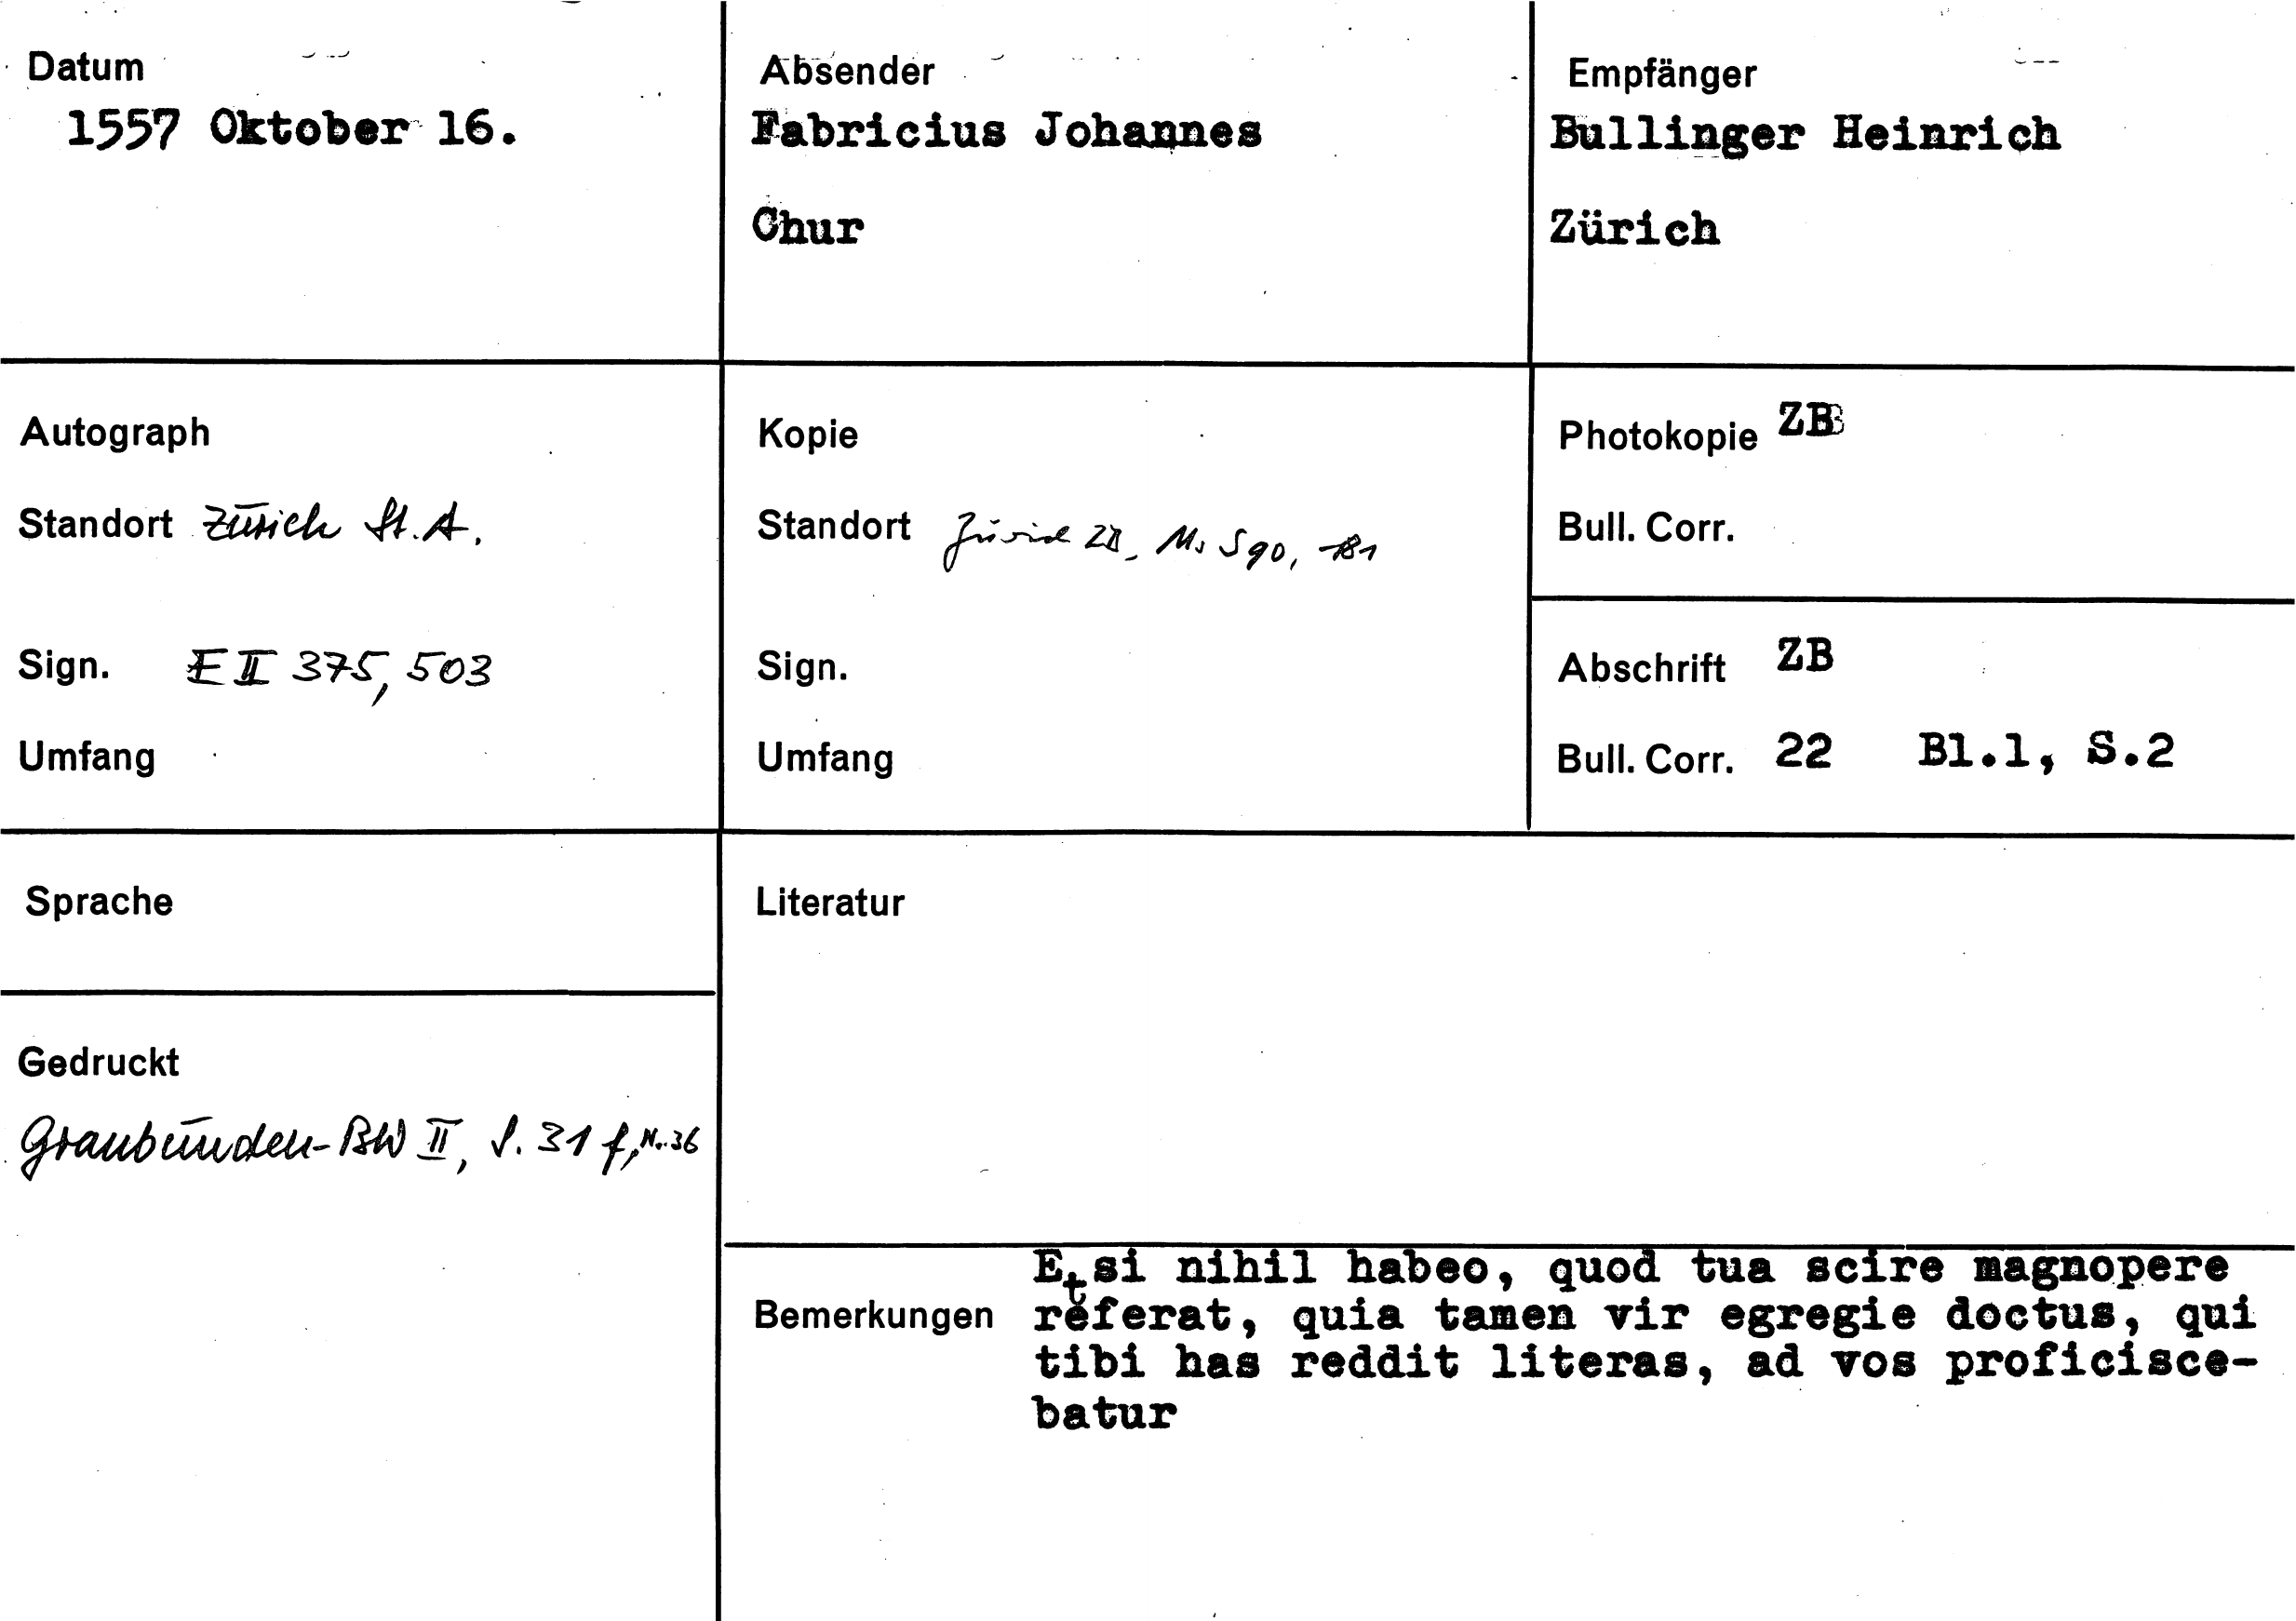 Datum
1557 Oktober 16.
Absender
Fabricius Johannes
Chur
Empfänger
Bullinger Heinrich
Zürich
Autograph
Standort Zürich St. A.
Sign. E II 375, 503
Umfang
Kopie
Standort Zürich ZB, Ms S 90, 181
Sign.
Umfang
Photokopie ZB
Bull. Corr.
Abschrift ZB
Bull. Corr. 22 Bl.1, S.2
Sprache
Literatur
Gedruckt
Graubünden-BW II, S. 31 f, Nr. 36
Bemerkungen
Etsi nihil habeo, quod tua scire magnopere
referat, quia tamen vir egregie doctus, qui
tibi has reddit literas, ad vos proficisce-
batur